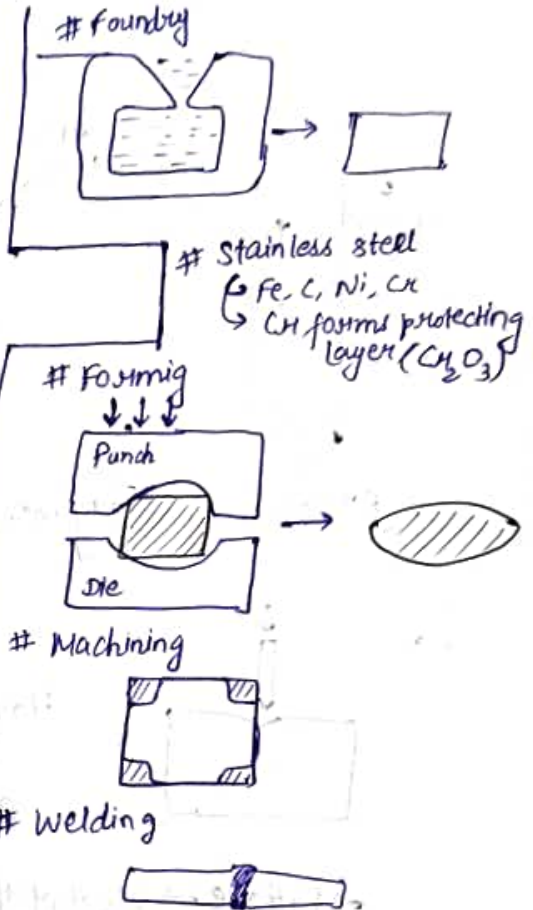 # Foundry
# Stainless steel
Fe, C, Ni, Cr
Cr forms protecting
layer (Cr2O3)
# Formig
Punch
Die
# Machining
# Welding